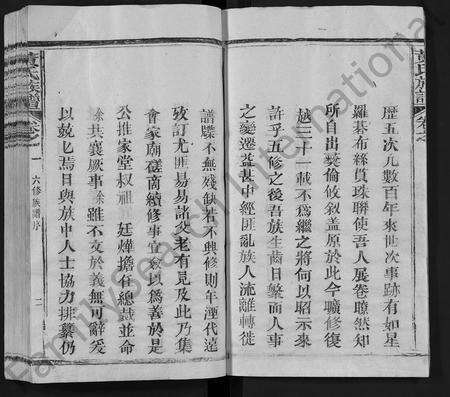 歷五次凡數百年來世次事跡有如星
羅碁布絲貫珠聯使吾人展卷瞭然知
所自出奕倫攸敘蓋原於此今曠修復
越三十一載不為繼之將何以昭示來
許乎五修之後吾族生齒日繁而人事
之變遷益甚中經匪亂族人流離轉徙
譜牒不無殘缺若不興修則年湮代遠
攷訂尤匪易易諸父老有見及此乃集
會家廟磋商續修事宜僉以為善於是
公推家堂叔祖廷燁擔任總裁並命
餘共襄厥事餘雖不文於義無可辭爰
以兢匕焉日與族中人士協力排纂仍
黃氏族譜
卷之一
六修族譜序
二
黃氏族譜
卷之
FamilySearch International